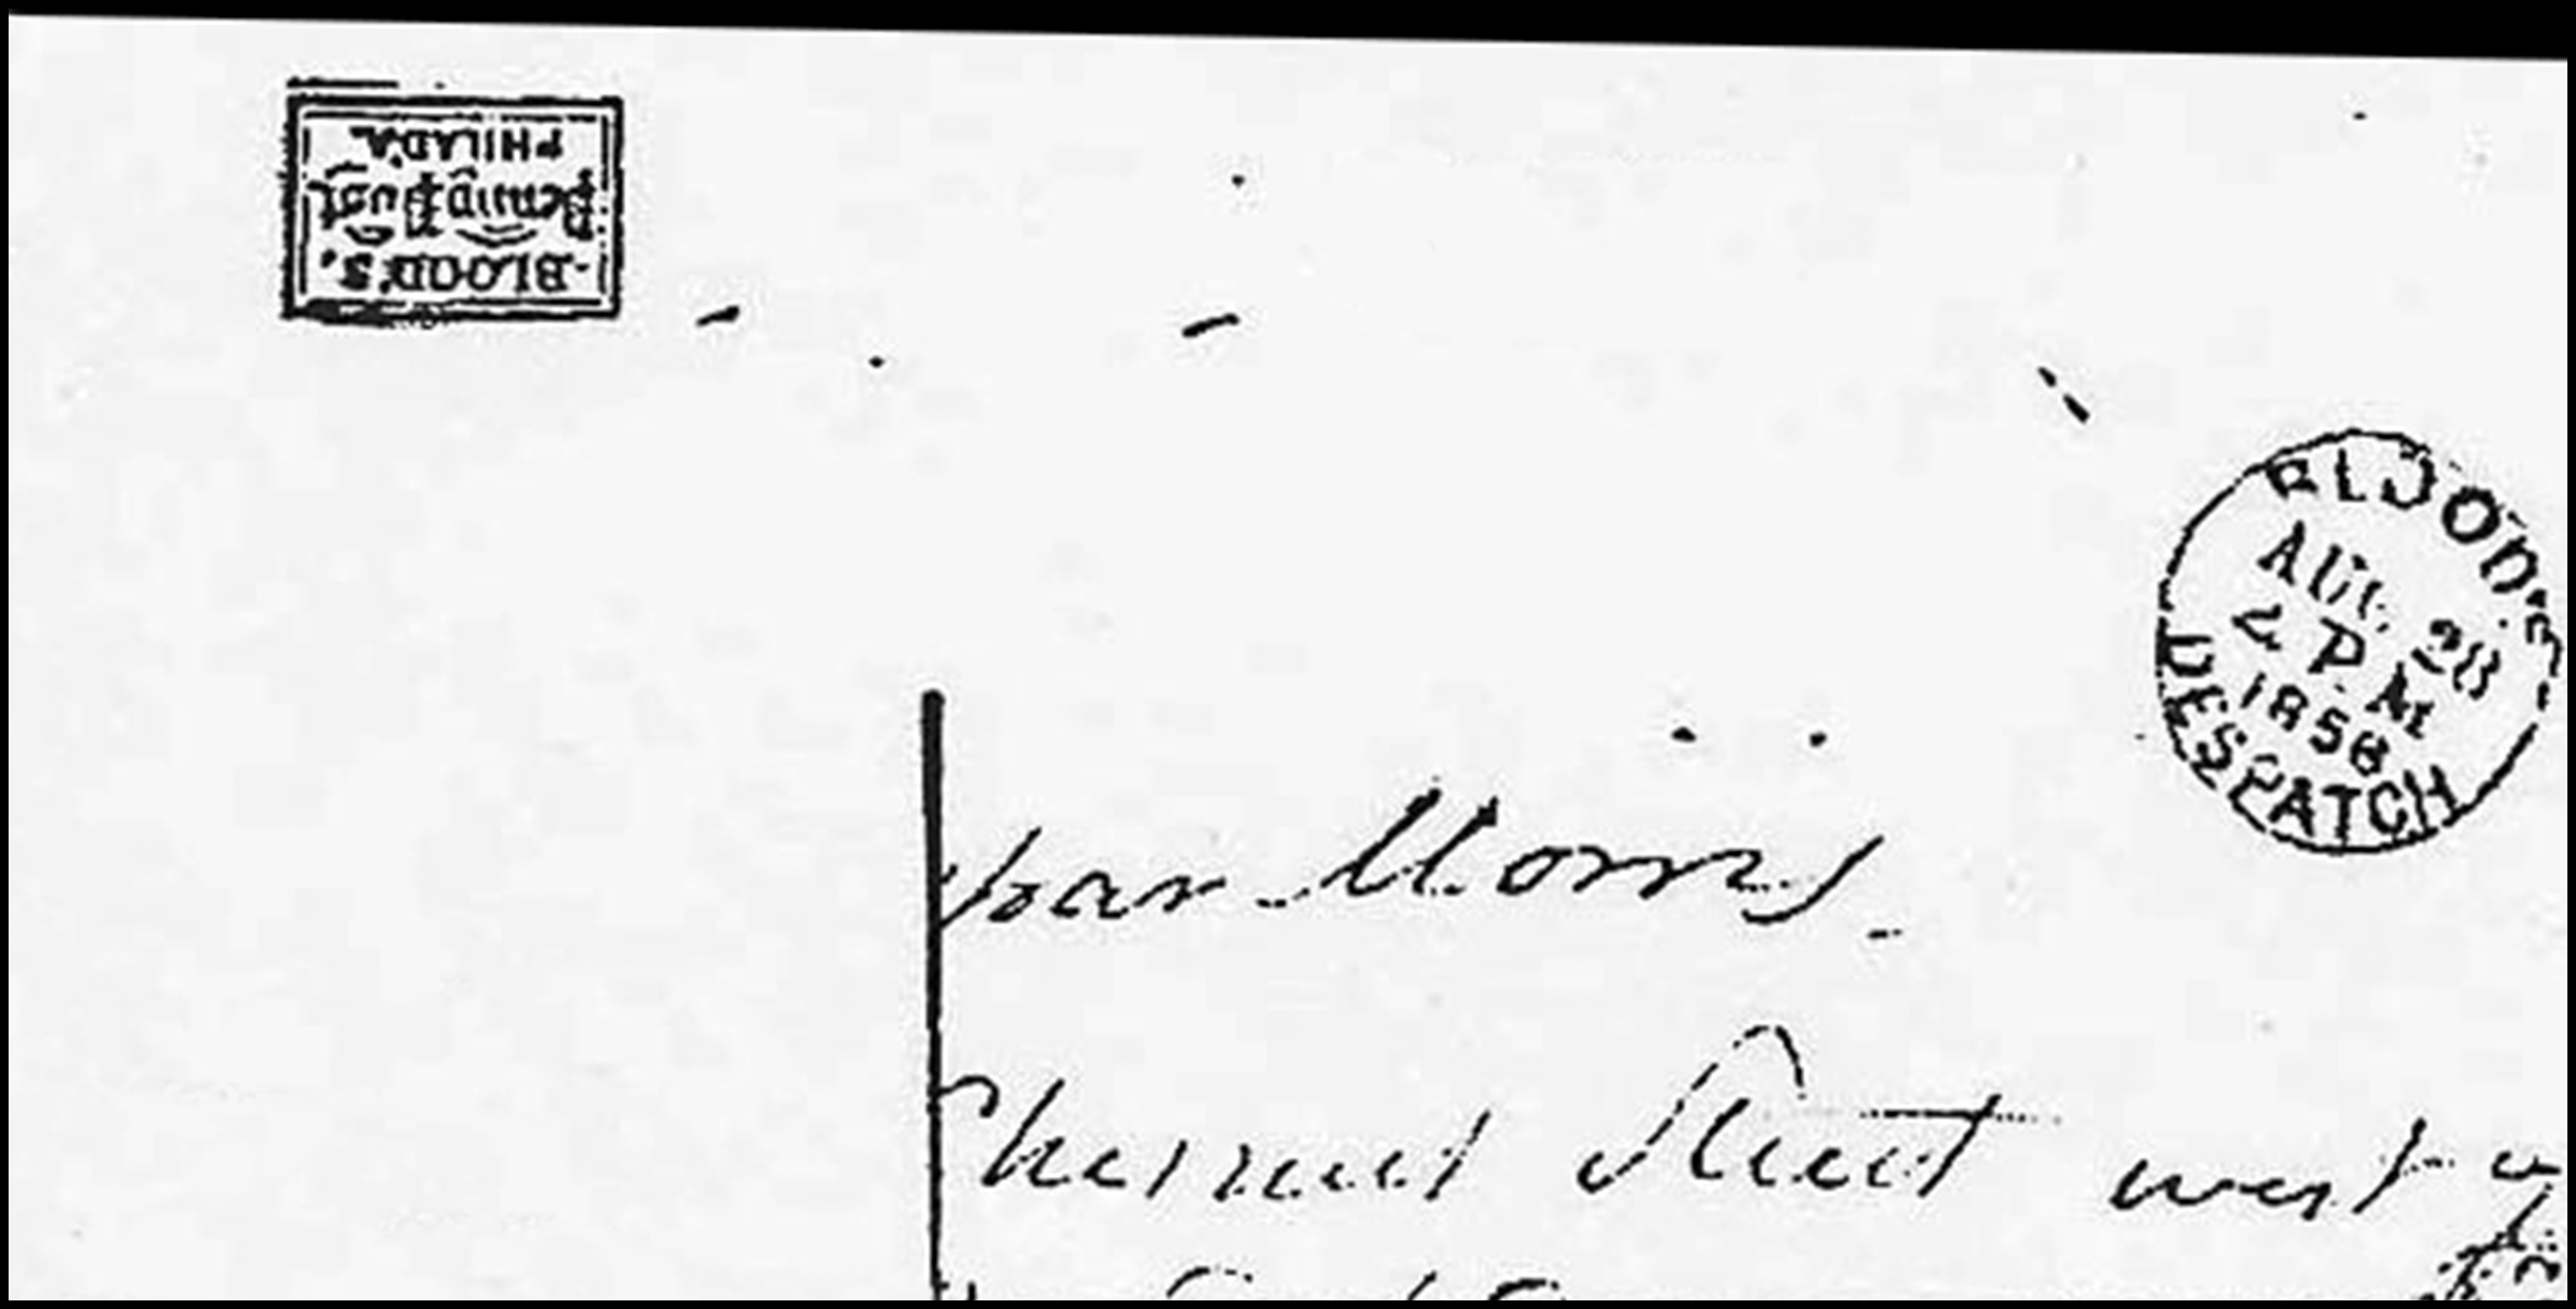 BLOOD'S
Penny Post
PHILADA.
BLOOD'S
AUG 28
P.M
1858
DESPATCH
Morris
Chesnut Street west